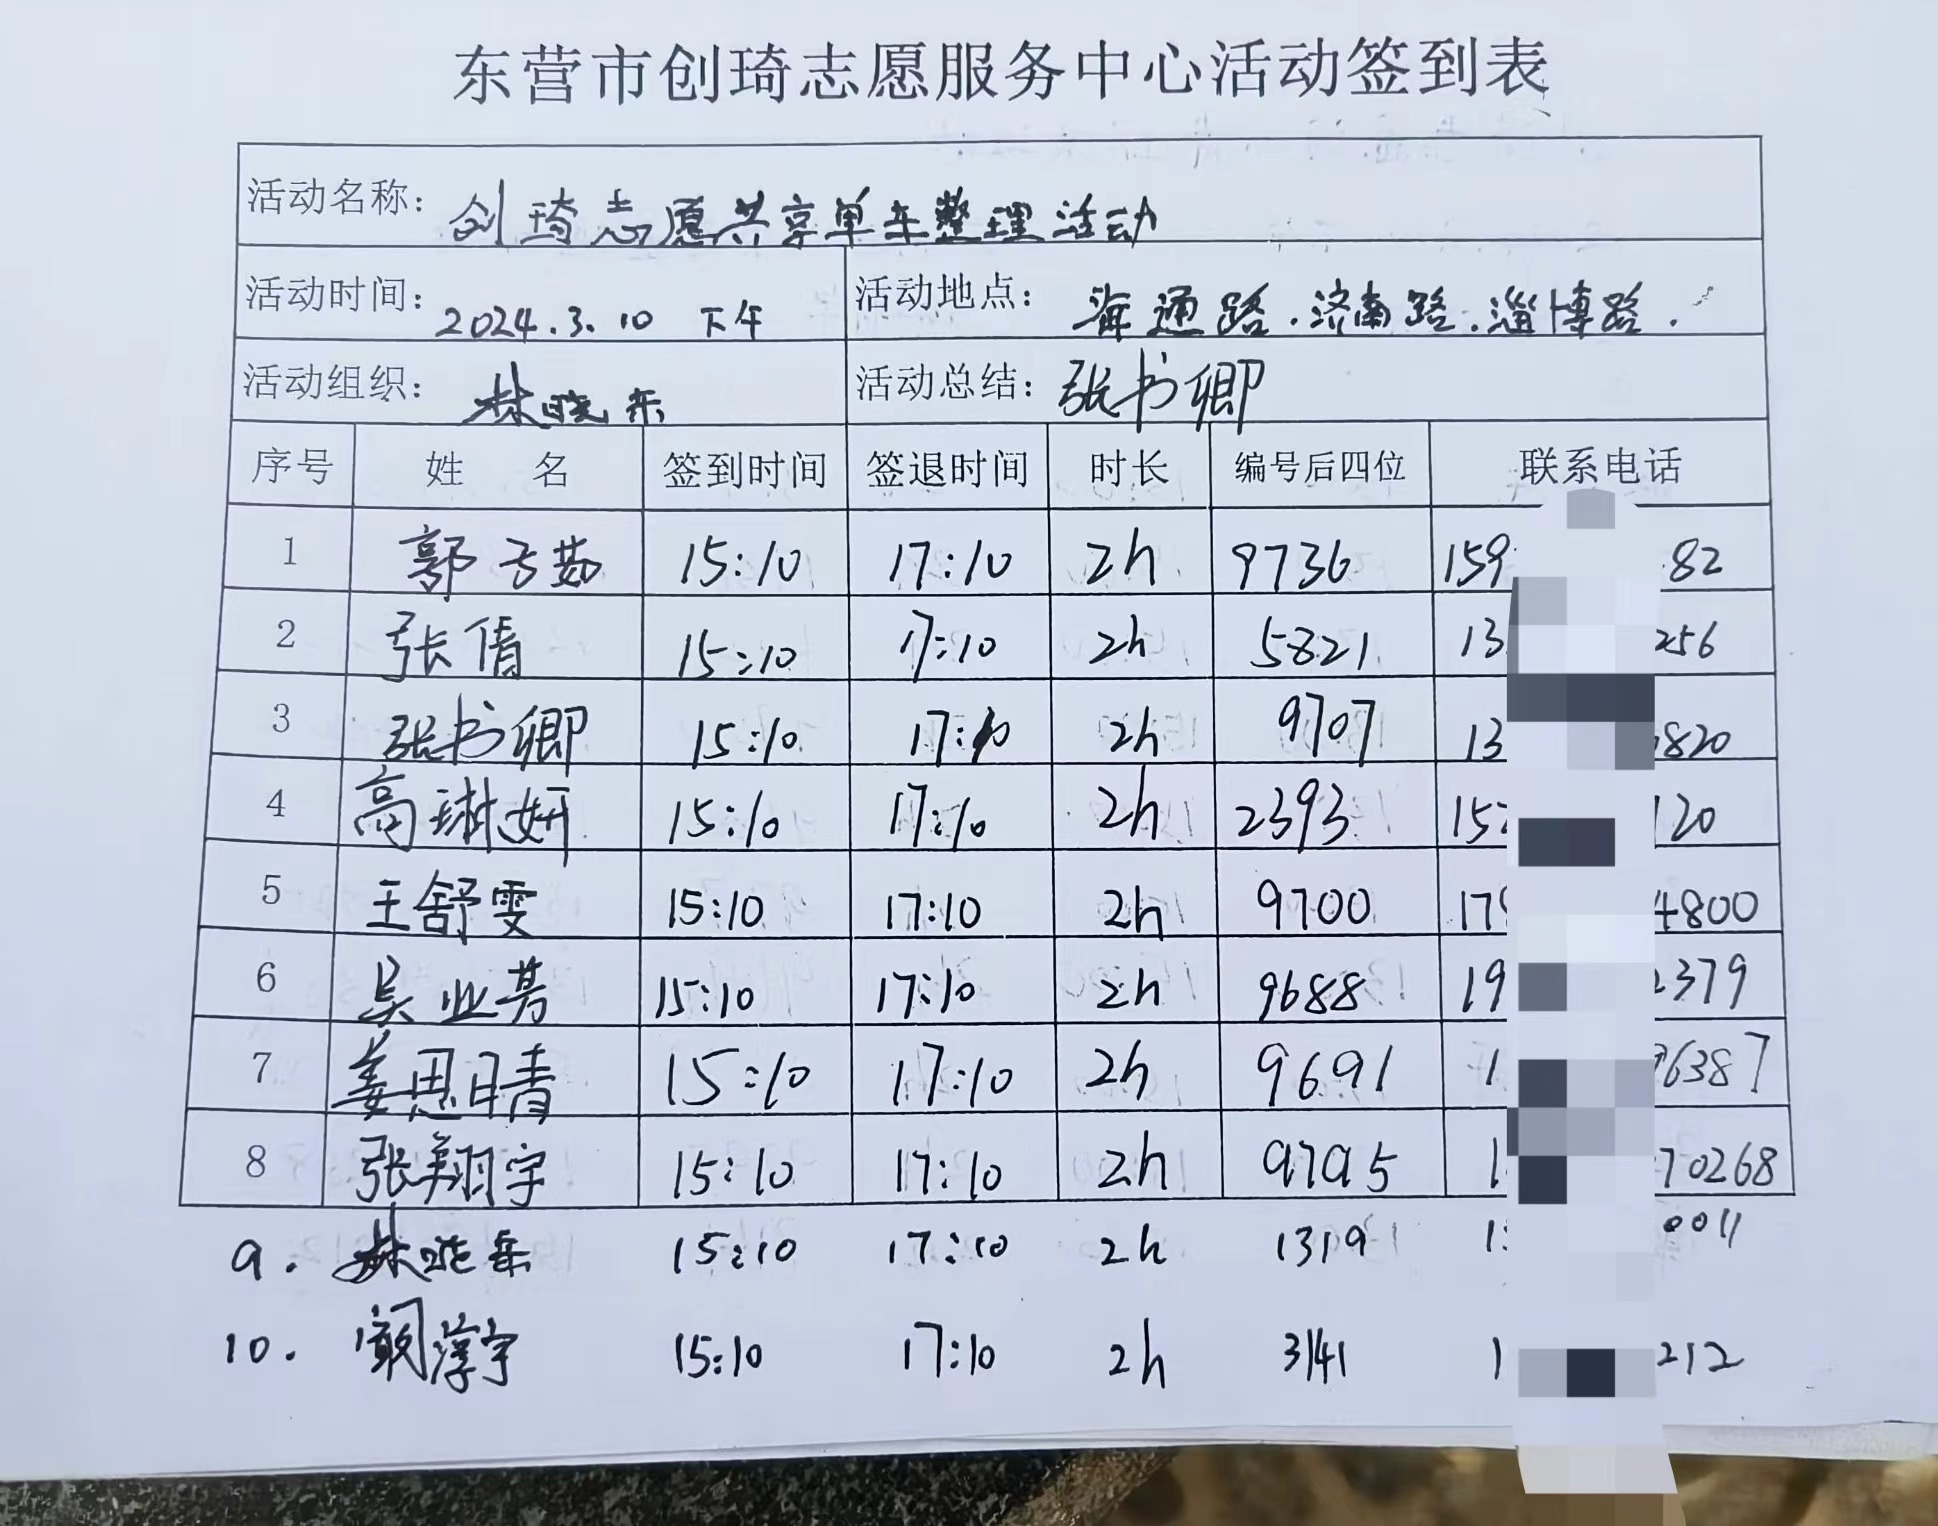 东营市创琦志愿服务中心活动签到表
活动名称：创琦志愿共享单车整理活动
活动时间：2024.3.10 下午 活动地点：海通路.济南路.淄博路.
活动组织：林晓东 活动总结：张书卿
序号 姓 名 签到时间 签退时间 时长 编号后四位 联系电话
1 郭子茹 15:10 17:10 2h 9736 159 82
2 张倩 15:10 17:10 2h 5821 13 256
3 张书卿 15:10 17:10 2h 9707 13 820
4 高琳妍 15:10 17:10 2h 2393 152 120
5 王舒雯 15:10 17:10 2h 9700 17 4800
6 吴业芳 15:10 17:10 2h 9688 19 2379
7 姜思晴 15:10 17:10 2h 9691 1 6387
8 张翔宇 15:10 17:10 2h 9795 1 70268
9. 林晓东 15:10 17:10 2h 1319 1 0011
10. 阚淳宇 15:10 17:10 2h 3141 1 212